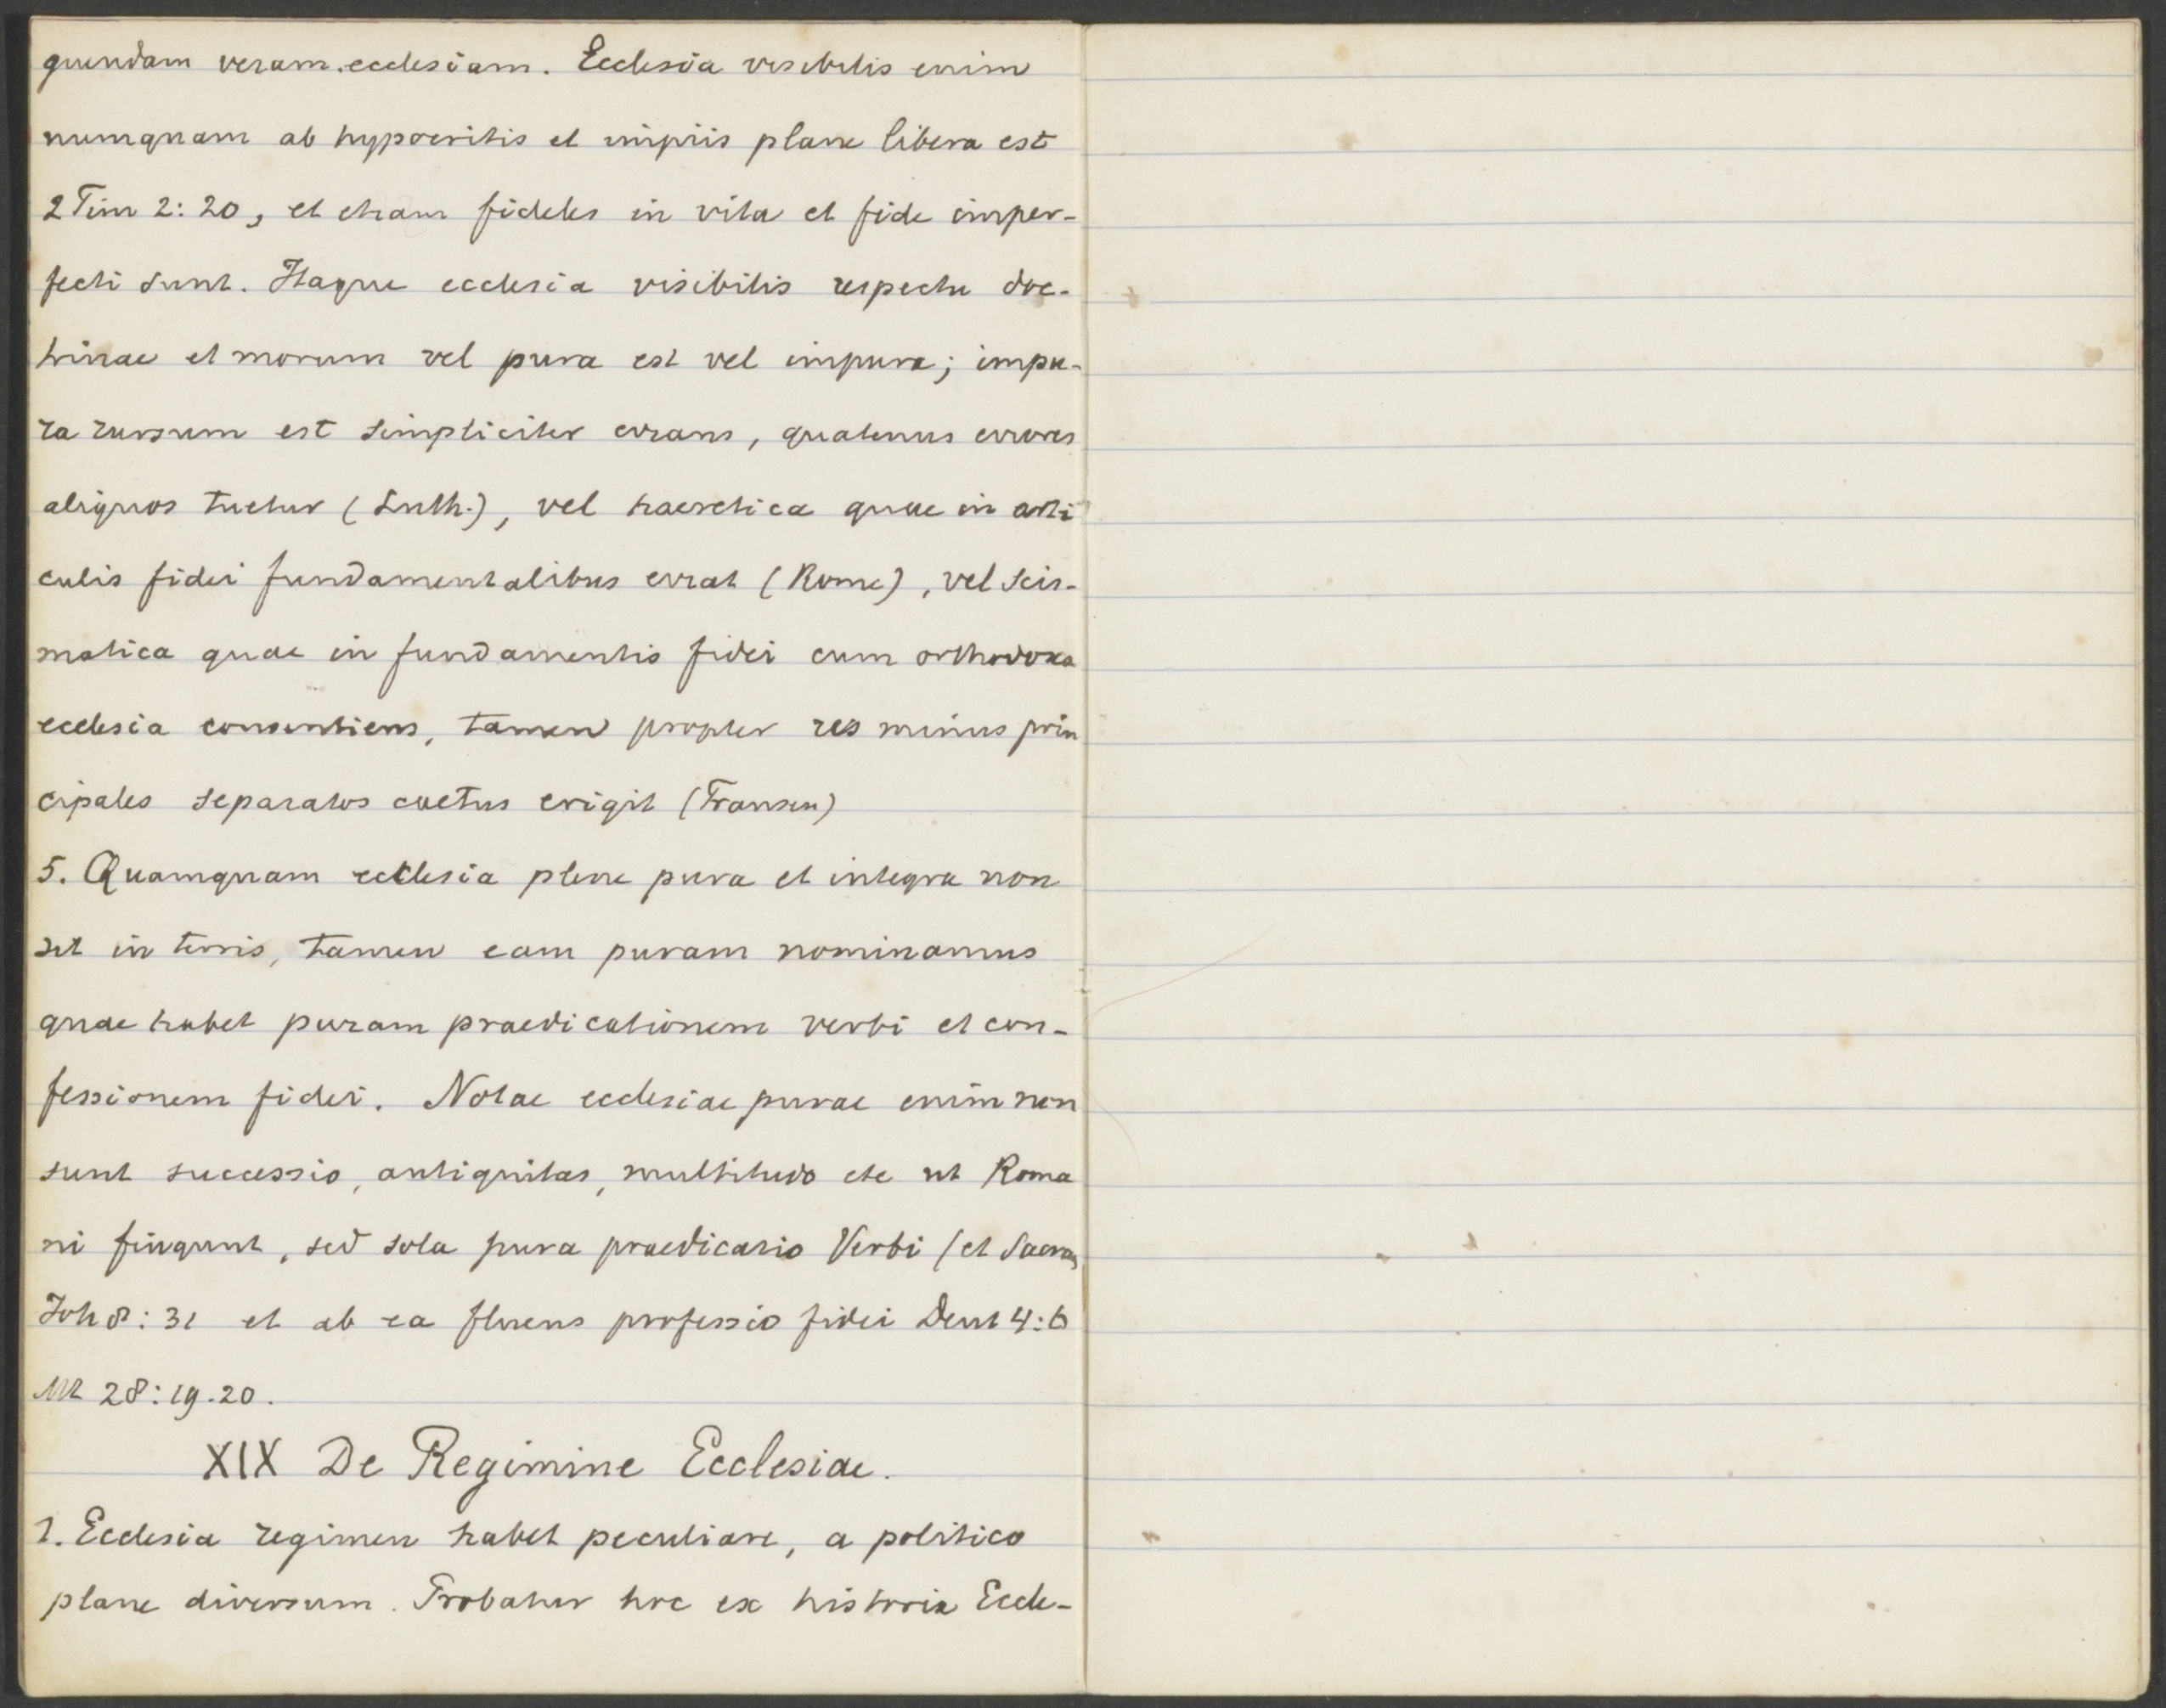 quendam veram ecclesiam. Ecclesia visibilis enim
numquam ab hypocritis et impiis plane libera est
2 Tim 2:20, et etiam fideles in vita et fide imper-
fecti sunt. Itaque ecclesia visibilis respectu doc-
trinae et morum vel pura est vel impura; impu-
ra rursum est simpliciter errans, quatenus errores
aliquos tuetur (Luth.), vel haeretica quae in arti
culis fidei fundamentalibus errat (Rome), vel scis-
matica quae in fundamentis fidei cum orthodoxa
ecclesia consentiens, tamen propter res minus prin
cipales separatos coetus erigit (Fransen)
5. Quamquam ecclesia plene pura et integra non
sit in terris, tamen eam puram nominamus
quae habet puram praedicationem verbi et con-
fessionem fidei. Notae ecclesiae purae enim non
sunt successio, antiquitas, multitudo etc ut Roma
ni fingunt, sed sola pura praedicatio Verbi (et Sacram
Joh 8:31 et ab ea fluens professio fidei Deut 4:6
Mt 28:19.20.
XIX De Regimine Ecclesiae.
1. Ecclesia regimen habet peculiare, a politico
plane diversum. Probatur hoc ex historia Eccle-